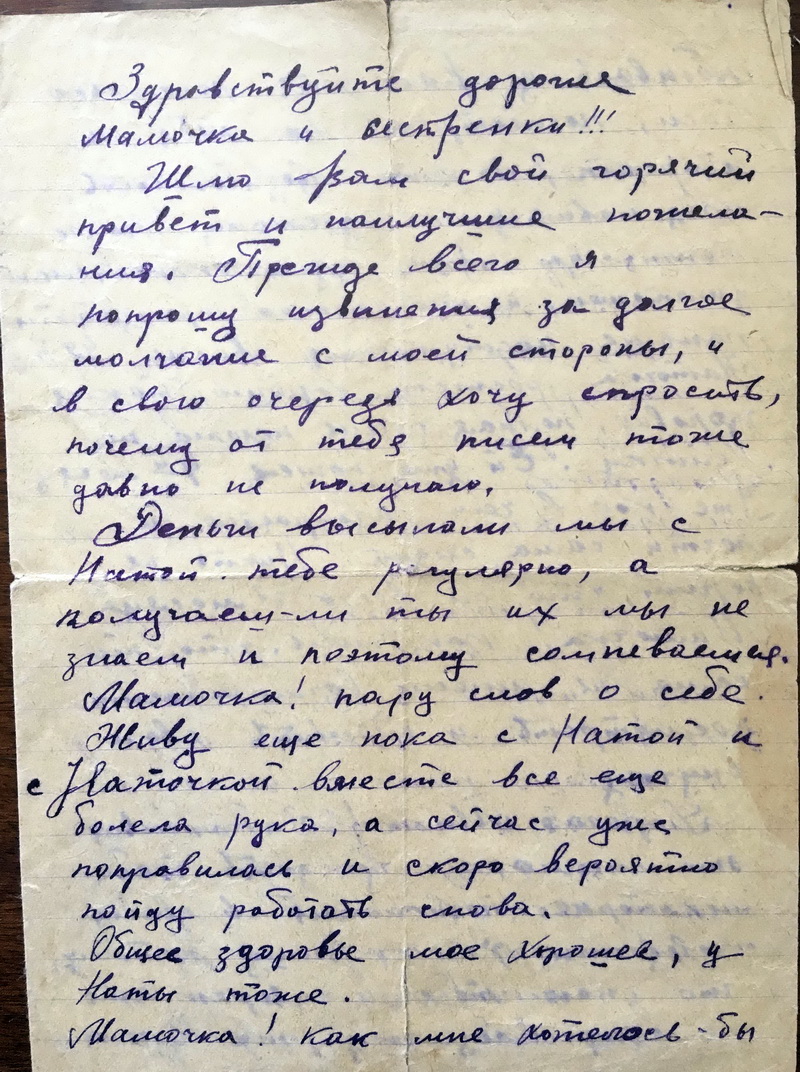 Здравствуйте дорогие
Мамочка и сестренки!!!
Шлю Вам свой горячий
привет и наилучшие пожела-
ния. Прежде всего я
попрошу извинения за долгое
молчание с моей стороны, и
в свою очередь хочу спросить,
почему от тебя писем тоже
давно не получаю.
Деньги высылали мы с
Натой тебе регулярно, а
получаеш-ли ты их мы не
знаем и поэтому сомневаемся.
Мамочка! пару слов о себе.
Живу еще пока с Натой и
с Наточкой вместе все еще
болела рука, а сейчас уже
поправилась и скоро вероятно
пойду работать снова.
Общее здоровье мое хорошее, у
Наты тоже.
Мамочка! как мне хотелось-бы